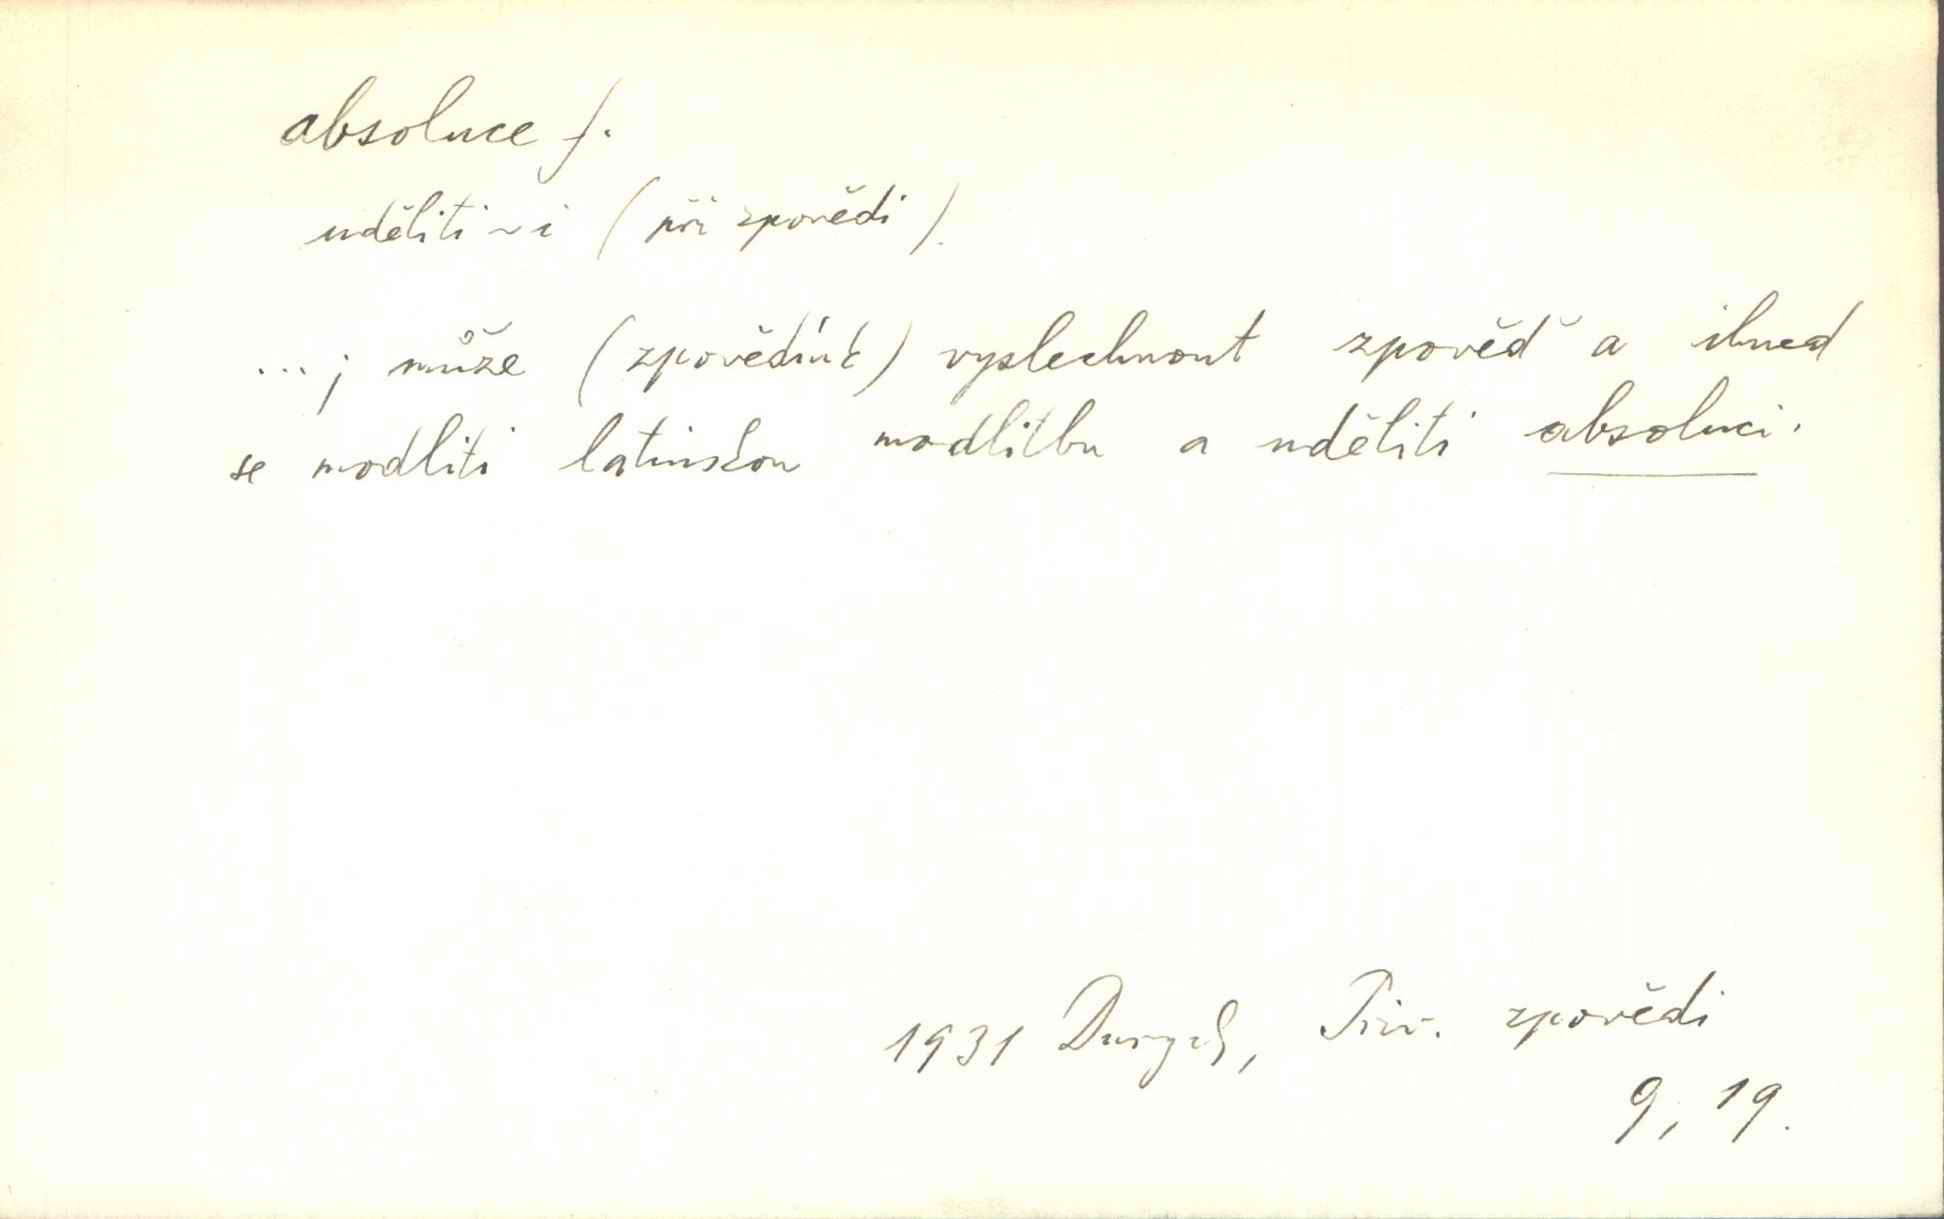 absoluce f.
uděliti ~i (při zpovědi).
...; může (zpovědník) vyslechnout zpověď a ihned
se modliti latinskou modlitbu a uděliti absoluci.
1931 Durych, Priv. zpovědi
9, 19.